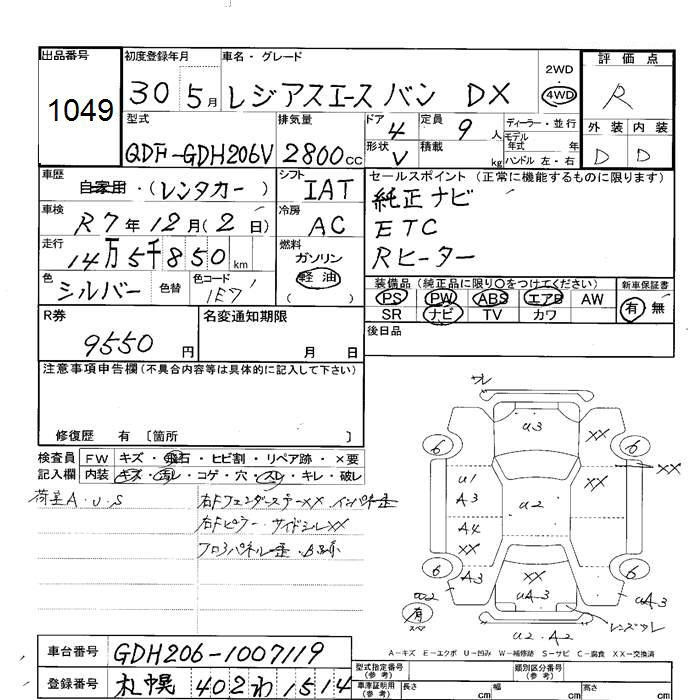 出品番号 初度登録年月 車名・グレード 評価点
1049 30 5月 レジアスエース バン DX 2WD・4WD R
型式 排気量 ドア 4 定員 9人 ディーラー・並行 外装 内装
QDF-GDH206V 2800cc 形状 V 積載 kg モデル年式 年 ハンドル 左・右 D D
車歴 自家用・(レンタカー) シフト IAT セールスポイント (正常に機能するものに限ります)
車検 R7年12月(2日) 冷房 AC 純正ナビ
ETC
Rヒーター
走行 14万5千850km 燃料 ガソリン 軽油 ( )
色 シルバー 色替 色コード 1E7 装備品(純正品に限り○をつけてください) 新車保証書
PS PW ABS エアB AW 有 無
SR ナビ TV カワ
R券 9550円 名変通知期限 月 日 後日品
注意事項申告欄(不具合内容等は具体的に記入して下さい)
修復歴 有 〔箇所 〕
検査員 FW キズ・飛石・ヒビ割・リペア跡・×要
記入欄 内装 キズ・汚レ・コゲ・穴・スレ・キレ・破レ
荷室A・U・S 右Fフェンダーステー××
右Fピラー サイドシル××
サレ
U3
××
6 6
U1 ×× ××
A3 U2
A4
××
6 6
A3 ×× A3
UA3 UA3
有 スペア
レンズワレ
U2・A2
A-キズ E-エクボ U-凹み W-補修跡 S-サビ C-腐食 XX-交換済
車台番号 GDH206-1007119
登録番号 札幌 402わ1514
型式指定番号(参考) 類別区分番号(参考)
車庫証明用(参考) 長さ cm 幅 cm 高さ cm